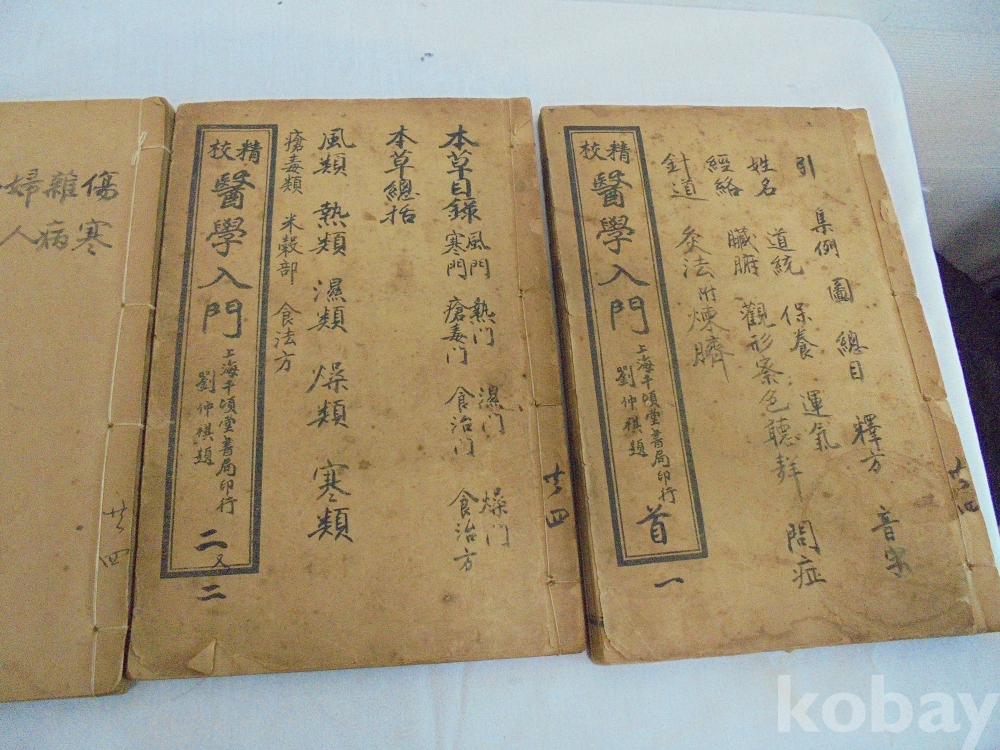 引
集例
圖
總目
釋方
音字
姓名
道統
保養
運氣
經絡
臟腑
觀形察色聽聲
問症
針道
灸法附煉臍
精校
醫學入門
上海千頃堂書局印行
劉仲祺題
首
一
廿四
本草目錄
風門
寒門
熱門
瘡毒门
濕门
食治门
燥门
食治方
本草總括
風類 熱類 濕類 燥類 寒類
瘡毒類 米穀部 食法方
精校
醫學入門
上海千頃堂書局印行
劉仲祺題
二
又
二
廿四
傷寒
雜病
婦人
廿四
kobay